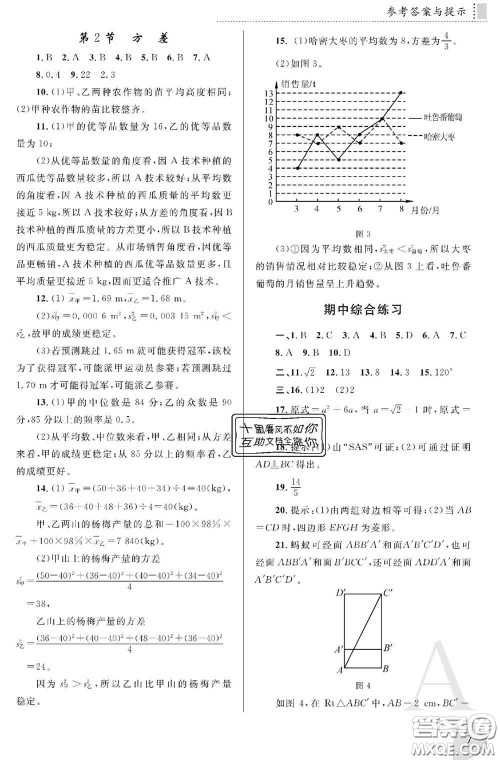 参考答案与提示
第2节 方差
1. B 2. A 3. A 4. B 5. B 6. B 7. B
8. 0.4 9. 22 2.3
10. (1)甲、乙两种农作物的苗平均高度相同;
(2)甲种农作物的苗比较整齐。
11. (1)甲的优等品数量为16,乙的优等品数
量为10;
(2)从优等品数量的角度看,因A技术种植的
西瓜优等品数量较多,所以A技术较好;从平均数
的角度看,因A技术种植的西瓜质量的平均数更
接近5 kg,所以A技术较好;从方差的角度看,因B
技术种植的西瓜质量的方差更小,所以B技术种植
的西瓜质量更为稳定。从市场销售角度看,因优等
品更畅销,A技术种植的西瓜优等品数量更多,且
平均质量更接近5 kg,因而更适合推广A技术。
12. (1) x甲=1.69 m,x乙=1.68 m.
(2) s²甲=0.000 6 m²,s²乙=0.003 15 m²,s²甲<
s²乙,故甲的成绩更稳定。
(3)若预测跳过1.65 m就可能获得冠军,该校
为了获得冠军,可能派甲运动员参赛;若预测跳过
1.70 m才可得冠军,可能派乙参赛。
13. (1)甲的中位数是84;乙的众数是
90,85分以上的频率是0.5。
(2)从平均数、中位数来看,都是甲好;从方差
来看,甲的成绩更稳定;从85分以上的频率看,乙
的成绩更好。
14. (1) x甲=(50+36+40+34)÷4=40(kg),
x乙=(36+40+48+36)÷4=40(kg),
甲、乙两山的杨梅产量的总和=100×98%×
x甲+100×98%×x乙=7 840(kg).
(2)甲山上的杨梅产量的方差
s²甲=(50-40)²+(36-40)²+(40-40)²+(34-40)²/4
=38,
乙山上的杨梅产量的方差
s²乙=(36-40)²+(40-40)²+(48-40)²+(36-40)²/4
=24。
因为s²甲>s²乙,所以乙山比甲山的杨梅产量
稳定。
15. (1)哈密大枣的平均数为8,方差为4/3。
(2)如图3。
销售量/t
13
12
11
10
9
8
7
6
5
4
3
2
1
0
吐鲁番葡萄
哈密大枣
3 4 5 6 7 8 月份/月
图3
(3)①因为平均数相同,s²大枣<s²葡萄,所以大枣
的销售情况相对比较稳定;②从图3上看,吐鲁番
葡萄的月销售量呈上升趋势。
期中综合练习
一、1. B 2. C 3. A 4. B 5. D 6. A 7. C
8. A 9. B 10. B
二、11. √2 12. 13 13. 8 14. 8 15. 120°
三、16. (1)2 (2)2
17. 原式=a²+6a,当a=√2-1时,原式=
18. 提示:(1)由“SAS”可证;(2)可通过证明
AD⊥BC得出。
19. 14/5
20. 提示:(1)由两组对边相等可得;(2)当AB
=CD时,四边形EFGH为菱形。
21. 蚂蚁可经面ABB'A'和面A'B'C'D',可经面
ABB'A'和面B'BCC',还可经过面ADD'A'和面
A'B'C'D'。
D' C'
A' B'
A B
图4
如图4,在Rt△ABC'中,AB=2 cm,BC'=
十里春风不如你
互助文档全靠你
A
7